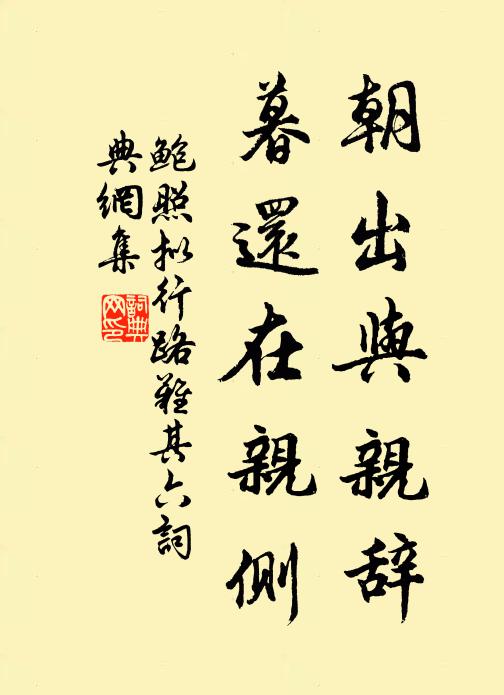 朝出與親辞
暮還在親側
鲍照拟行路難其六詞
典網集
詞典网印